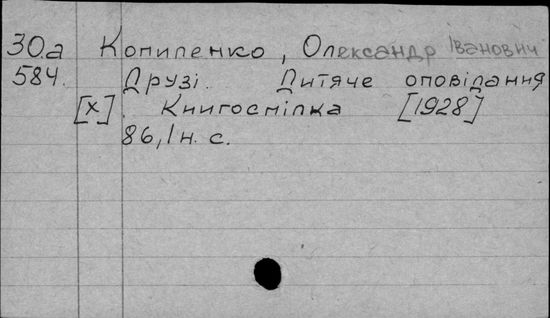 30а Копиленко, Олександр Іванович
584. Друзі. Дитяче оповідання
[х]. Книгоспілка [1928]
86, 1 н. с.